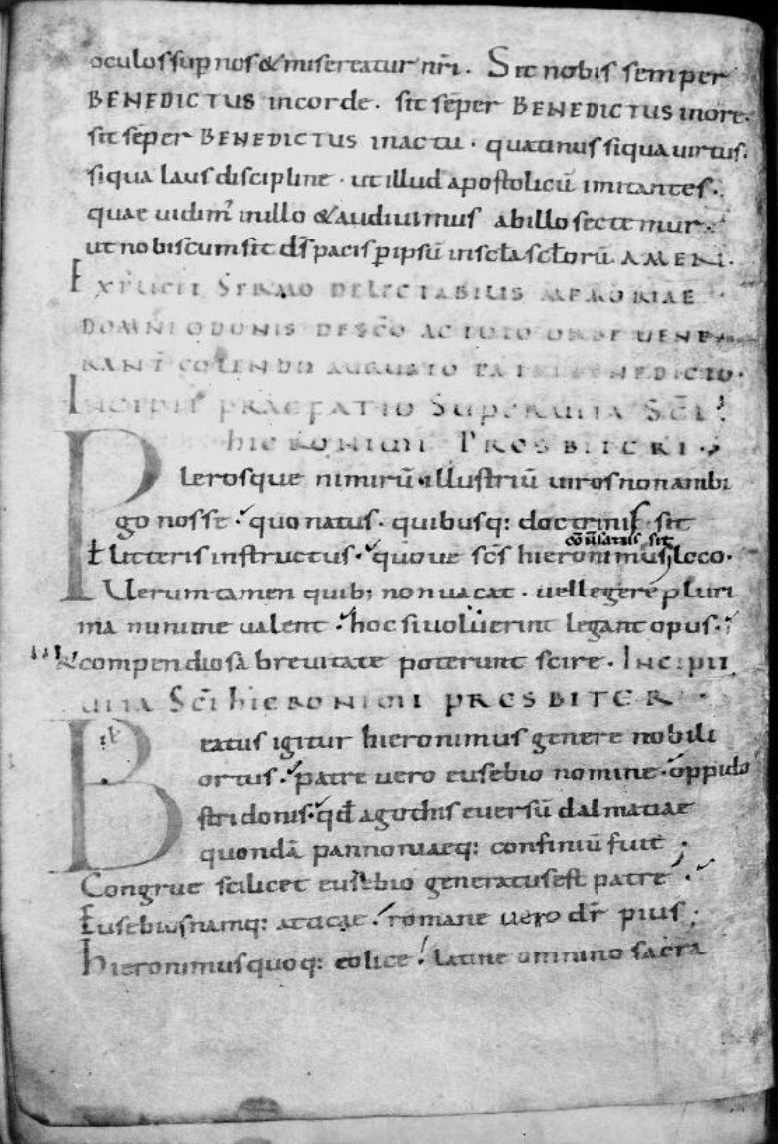 oculos sup nos & misereatur nr̄i. Sit nobis semper
BENEDICTUS in corde. sit sēper BENEDICTUS in ore.
sit sēper BENEDICTUS in actu. quatinus siqua uirtus.
siqua laus discipline. ut illud apostolicū imitantes.
quae uidim' in illo & audiuimus ab illo sectemur.
ut nobiscum sit ds̄ pacis p ipsū in scl̄a scl̄orū AMEN.
EXPLICIT SERMO DELECTABILIS MEMORIAE
DOMNI ODONIS DE SC̄O AC TOTO ORBE UENE
RANT COLENDO AUGUSTO PATRE BENEDICTO.
INCIPIT PRAEFATIO SUPER UITA SC̄I
HIERONIMI PRESBITERI.
Plerosque nimirū illustriū uiros non ambi
go nosse. quo natus. quibusq: doctrinis sit
cōuersatus sit
ł litteris instructus. quoue sc̄s hieronimus loco.
Uerumtamen quib; non uacat. uel legere pluri
ma minime ualent. hoc si uoluerint legant opus.
& compendiosa breuitate poterunt scire. INCIPIT
UITA SC̄I HIERONIMI PRESBITERI
Beatus igitur hieronimus genere nobili
ortus. patre uero eusebio nomine. oppido
stridonis. qd̄ a gothis euersū dalmatiae
quondā pannoniaeq: confiniū fuit;
Congrue scilicet eusebio generatus est patre.
Eusebius namq: atticae. romane uero dr̄ pius;
hieronimus quoq: eolice. latine omnino sacra